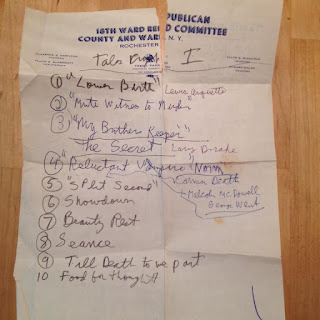 18TH WARD RE PUBLICAN
COUNTY AND WAR D COMMITTEE
ROCHESTER N.Y.
I
Tales
① "Lower Berth" Lewis Arquette
② "Mute Witness to Murder"
③ "My Brother Keeper"
The Secret Larry Drake
④ "Reluctant Vampire" Norm
⑤ "Split Second" Carmen Death
Malcolm McDowell
⑥ Showdown George Wendt
⑦ Beauty Rest
⑧ Seance
⑨ Till Death to we part
10 Food for thought